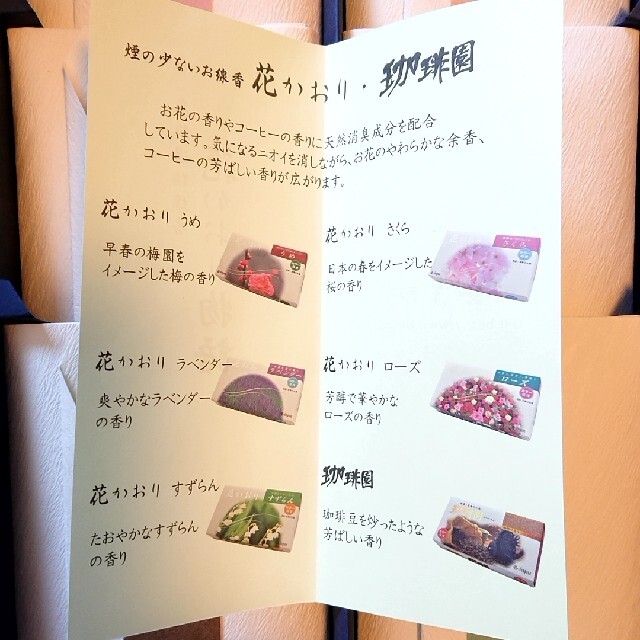 煙の少ないお線香 花かおり・珈琲園
お花の香りやコーヒーの香りに天然消臭成分を配合
しています。気になるニオイを消しながら、お花のやわらかな余香、
コーヒーの芳ばしい香りが広がります。
花かおり うめ
早春の梅園を
イメージした梅の香り
うめ
花かおり さくら
日本の春をイメージした
桜の香り
さくら
花かおり ラベンダー
爽やかなラベンダー
の香り
ラベンダー
花かおり ローズ
芳醇で華やかな
ローズの香り
ローズ
花かおり すずらん
たおやかなすずらん
の香り
すずらん
珈琲園
珈琲豆を炒ったような
芳ばしい香り